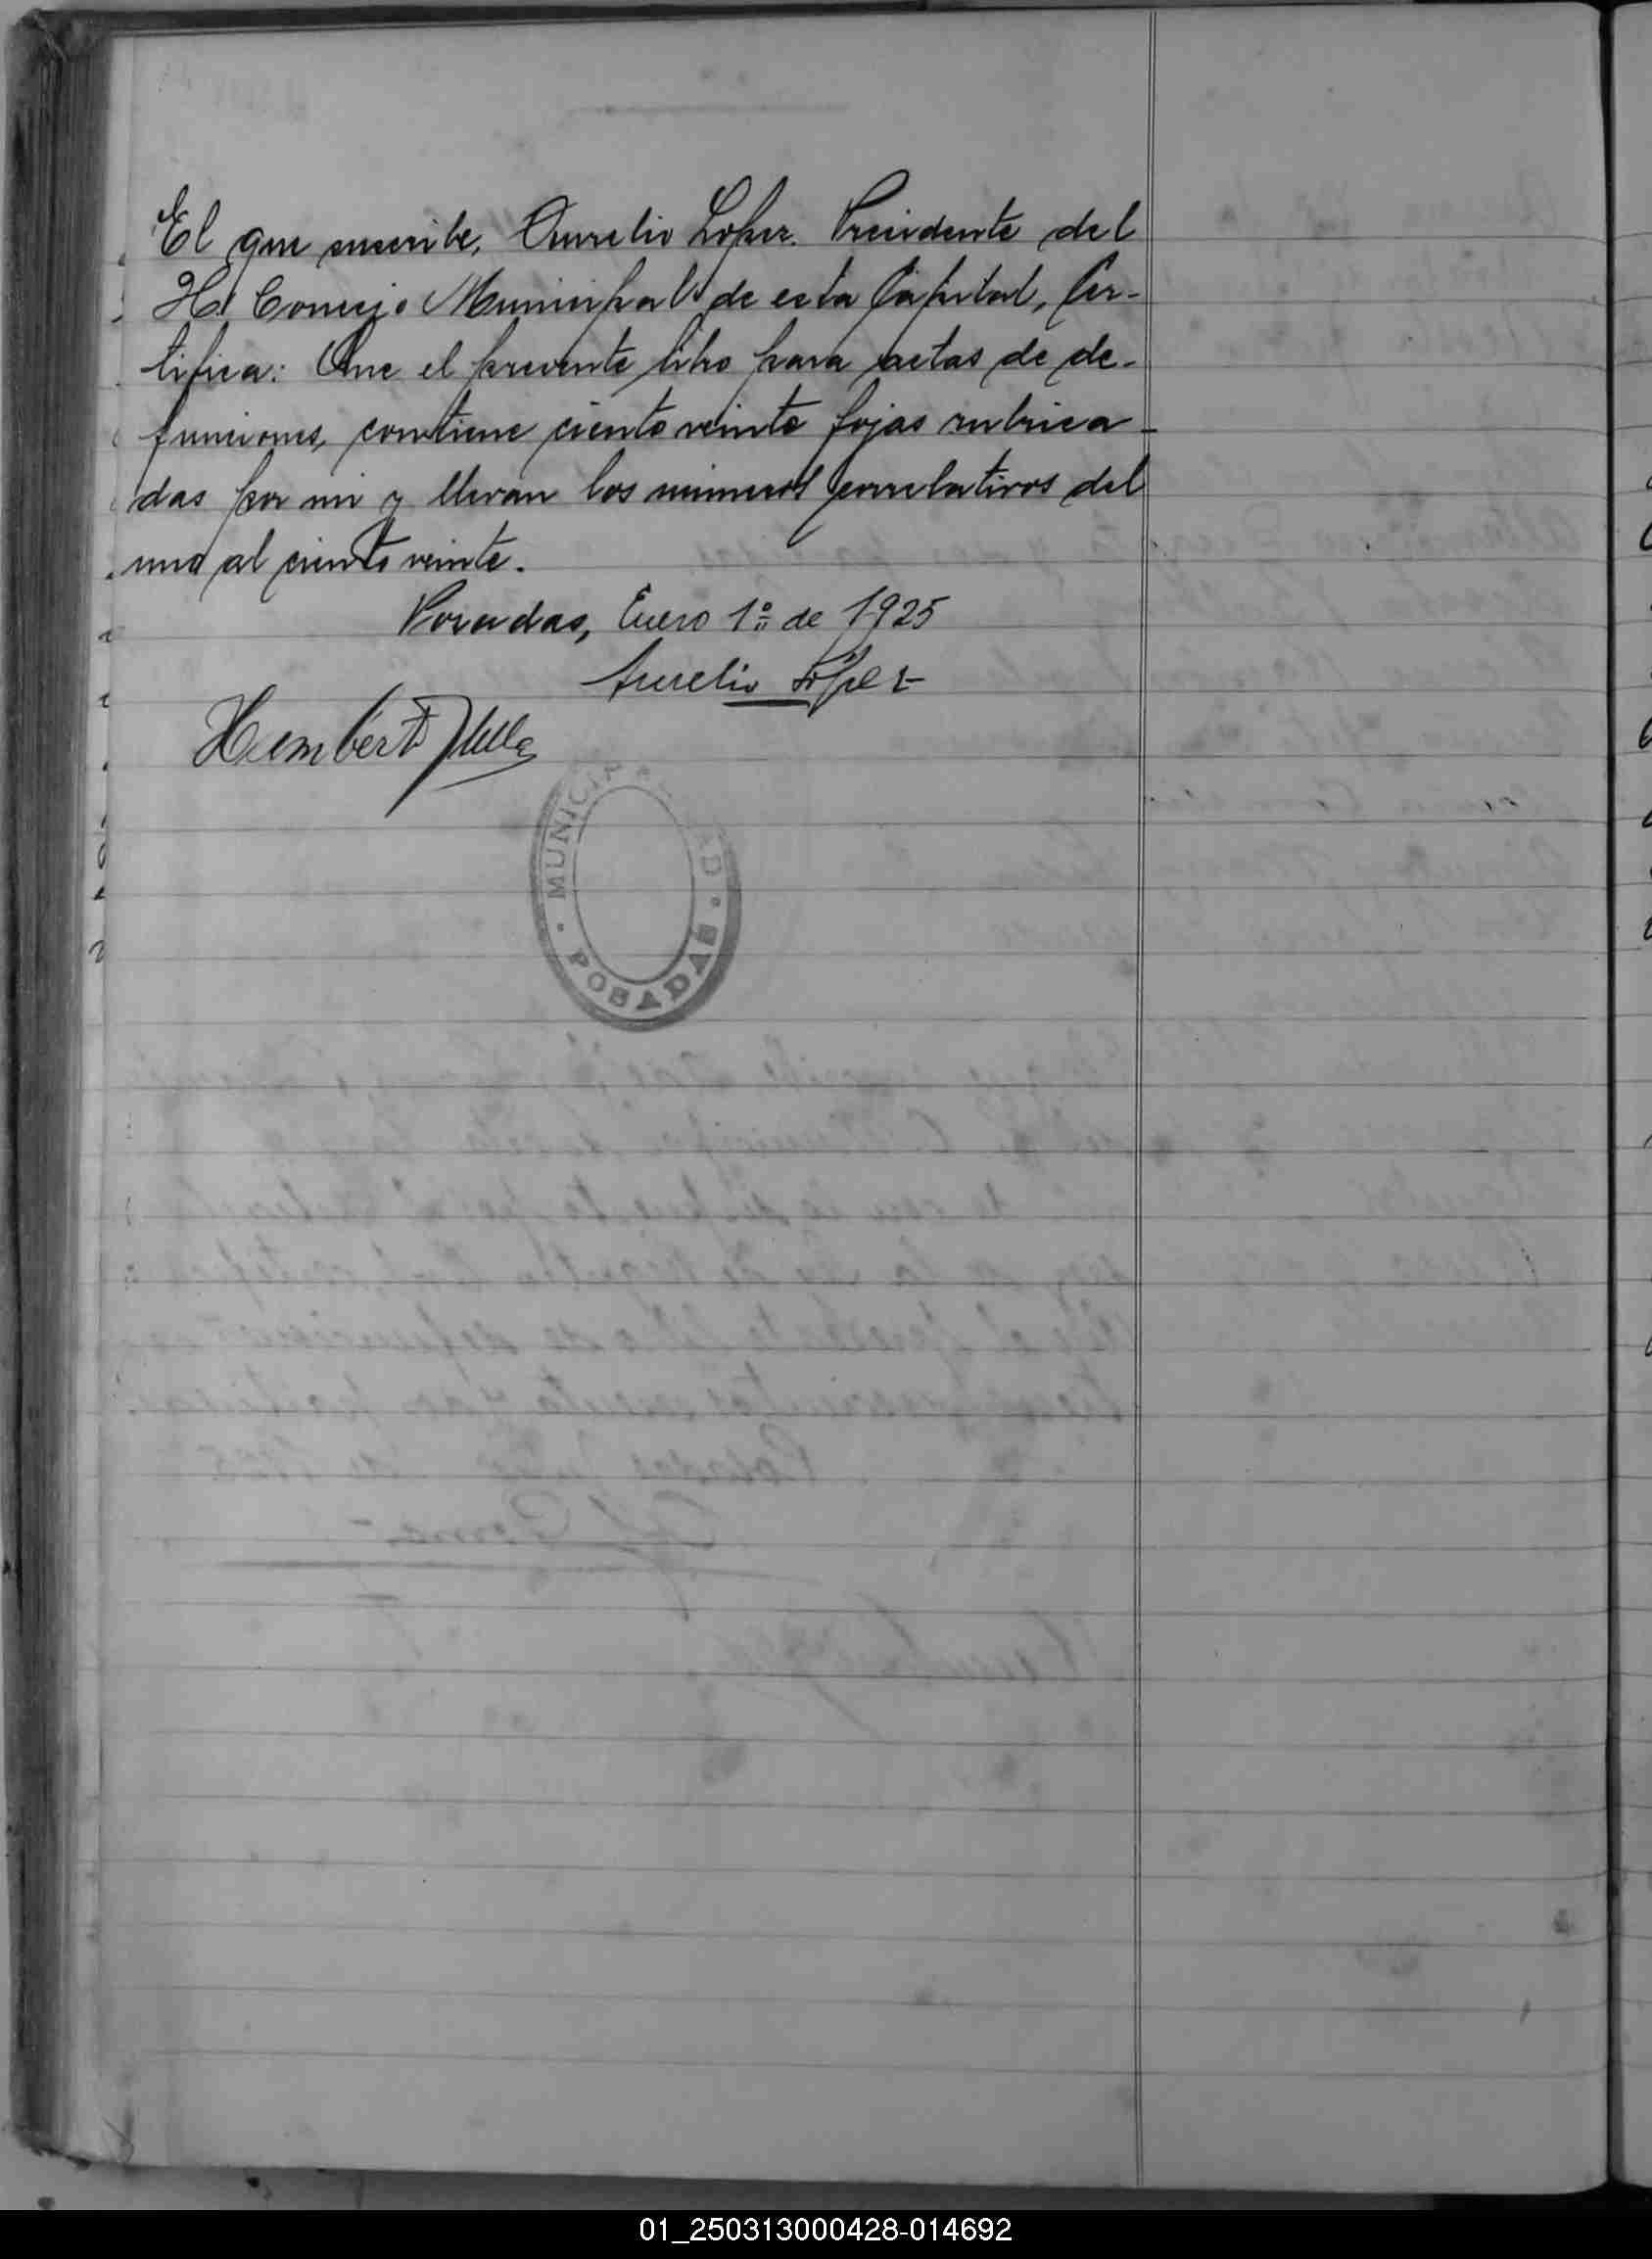 El que suscribe, Aurelio Lopez. Presidente del
H. Concejo Municipal de esta Capital, Cer-
tifica: Que el presente libro para actas de de-
funciones, contiene ciento veinte fojas rubrica-
das por mi y llevan los números correlativos del
uno al ciento veinte.
Posadas, Enero 1º de 1925
Aurelio López
Humberto
MUNICIPALIDAD · POSADAS ·
01_250313000428-014692